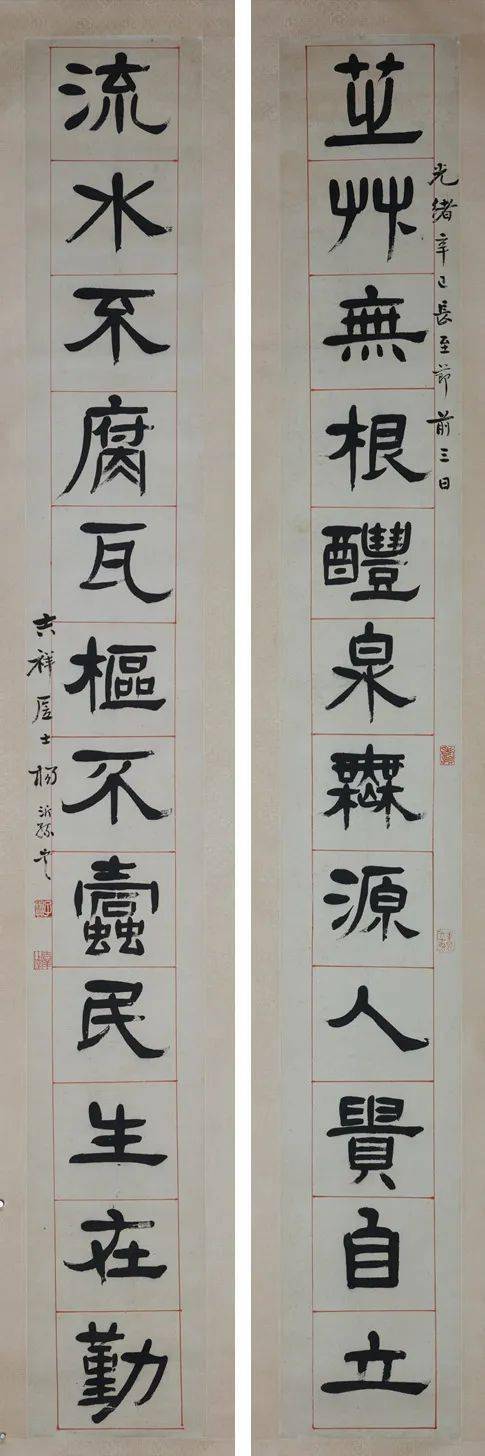 芝艸無根醴泉橆源人貴自立
光緒辛巳長至節前三日
流水不腐戶樞不蠹民生在勤
吉祥居士楊沂孫